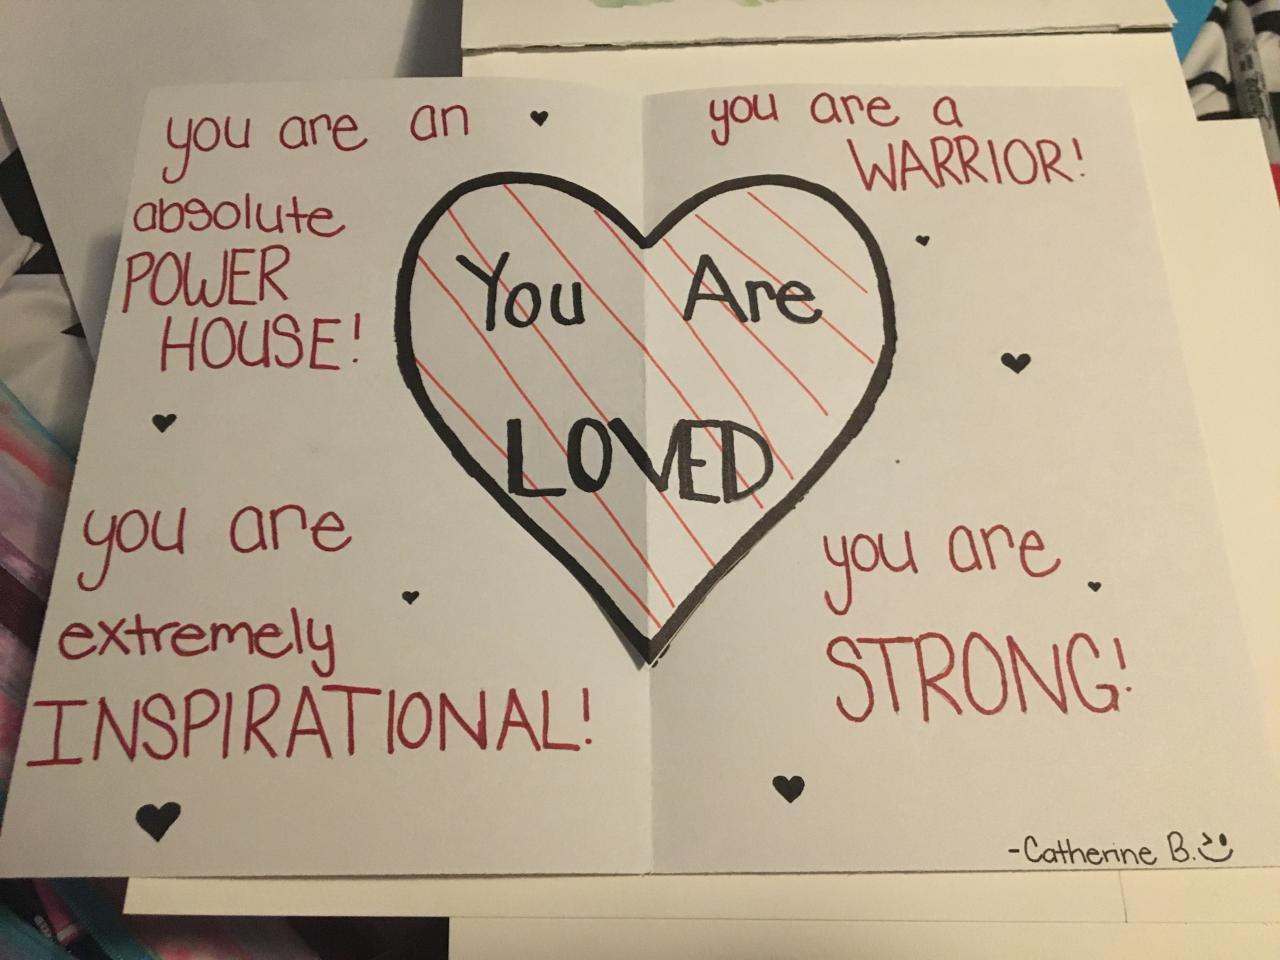 you are an
absolute
POWER
HOUSE!
you are a
WARRIOR!
You Are
LOVED
you are
extremely
INSPIRATIONAL!
you are
STRONG!
-Catherine B.